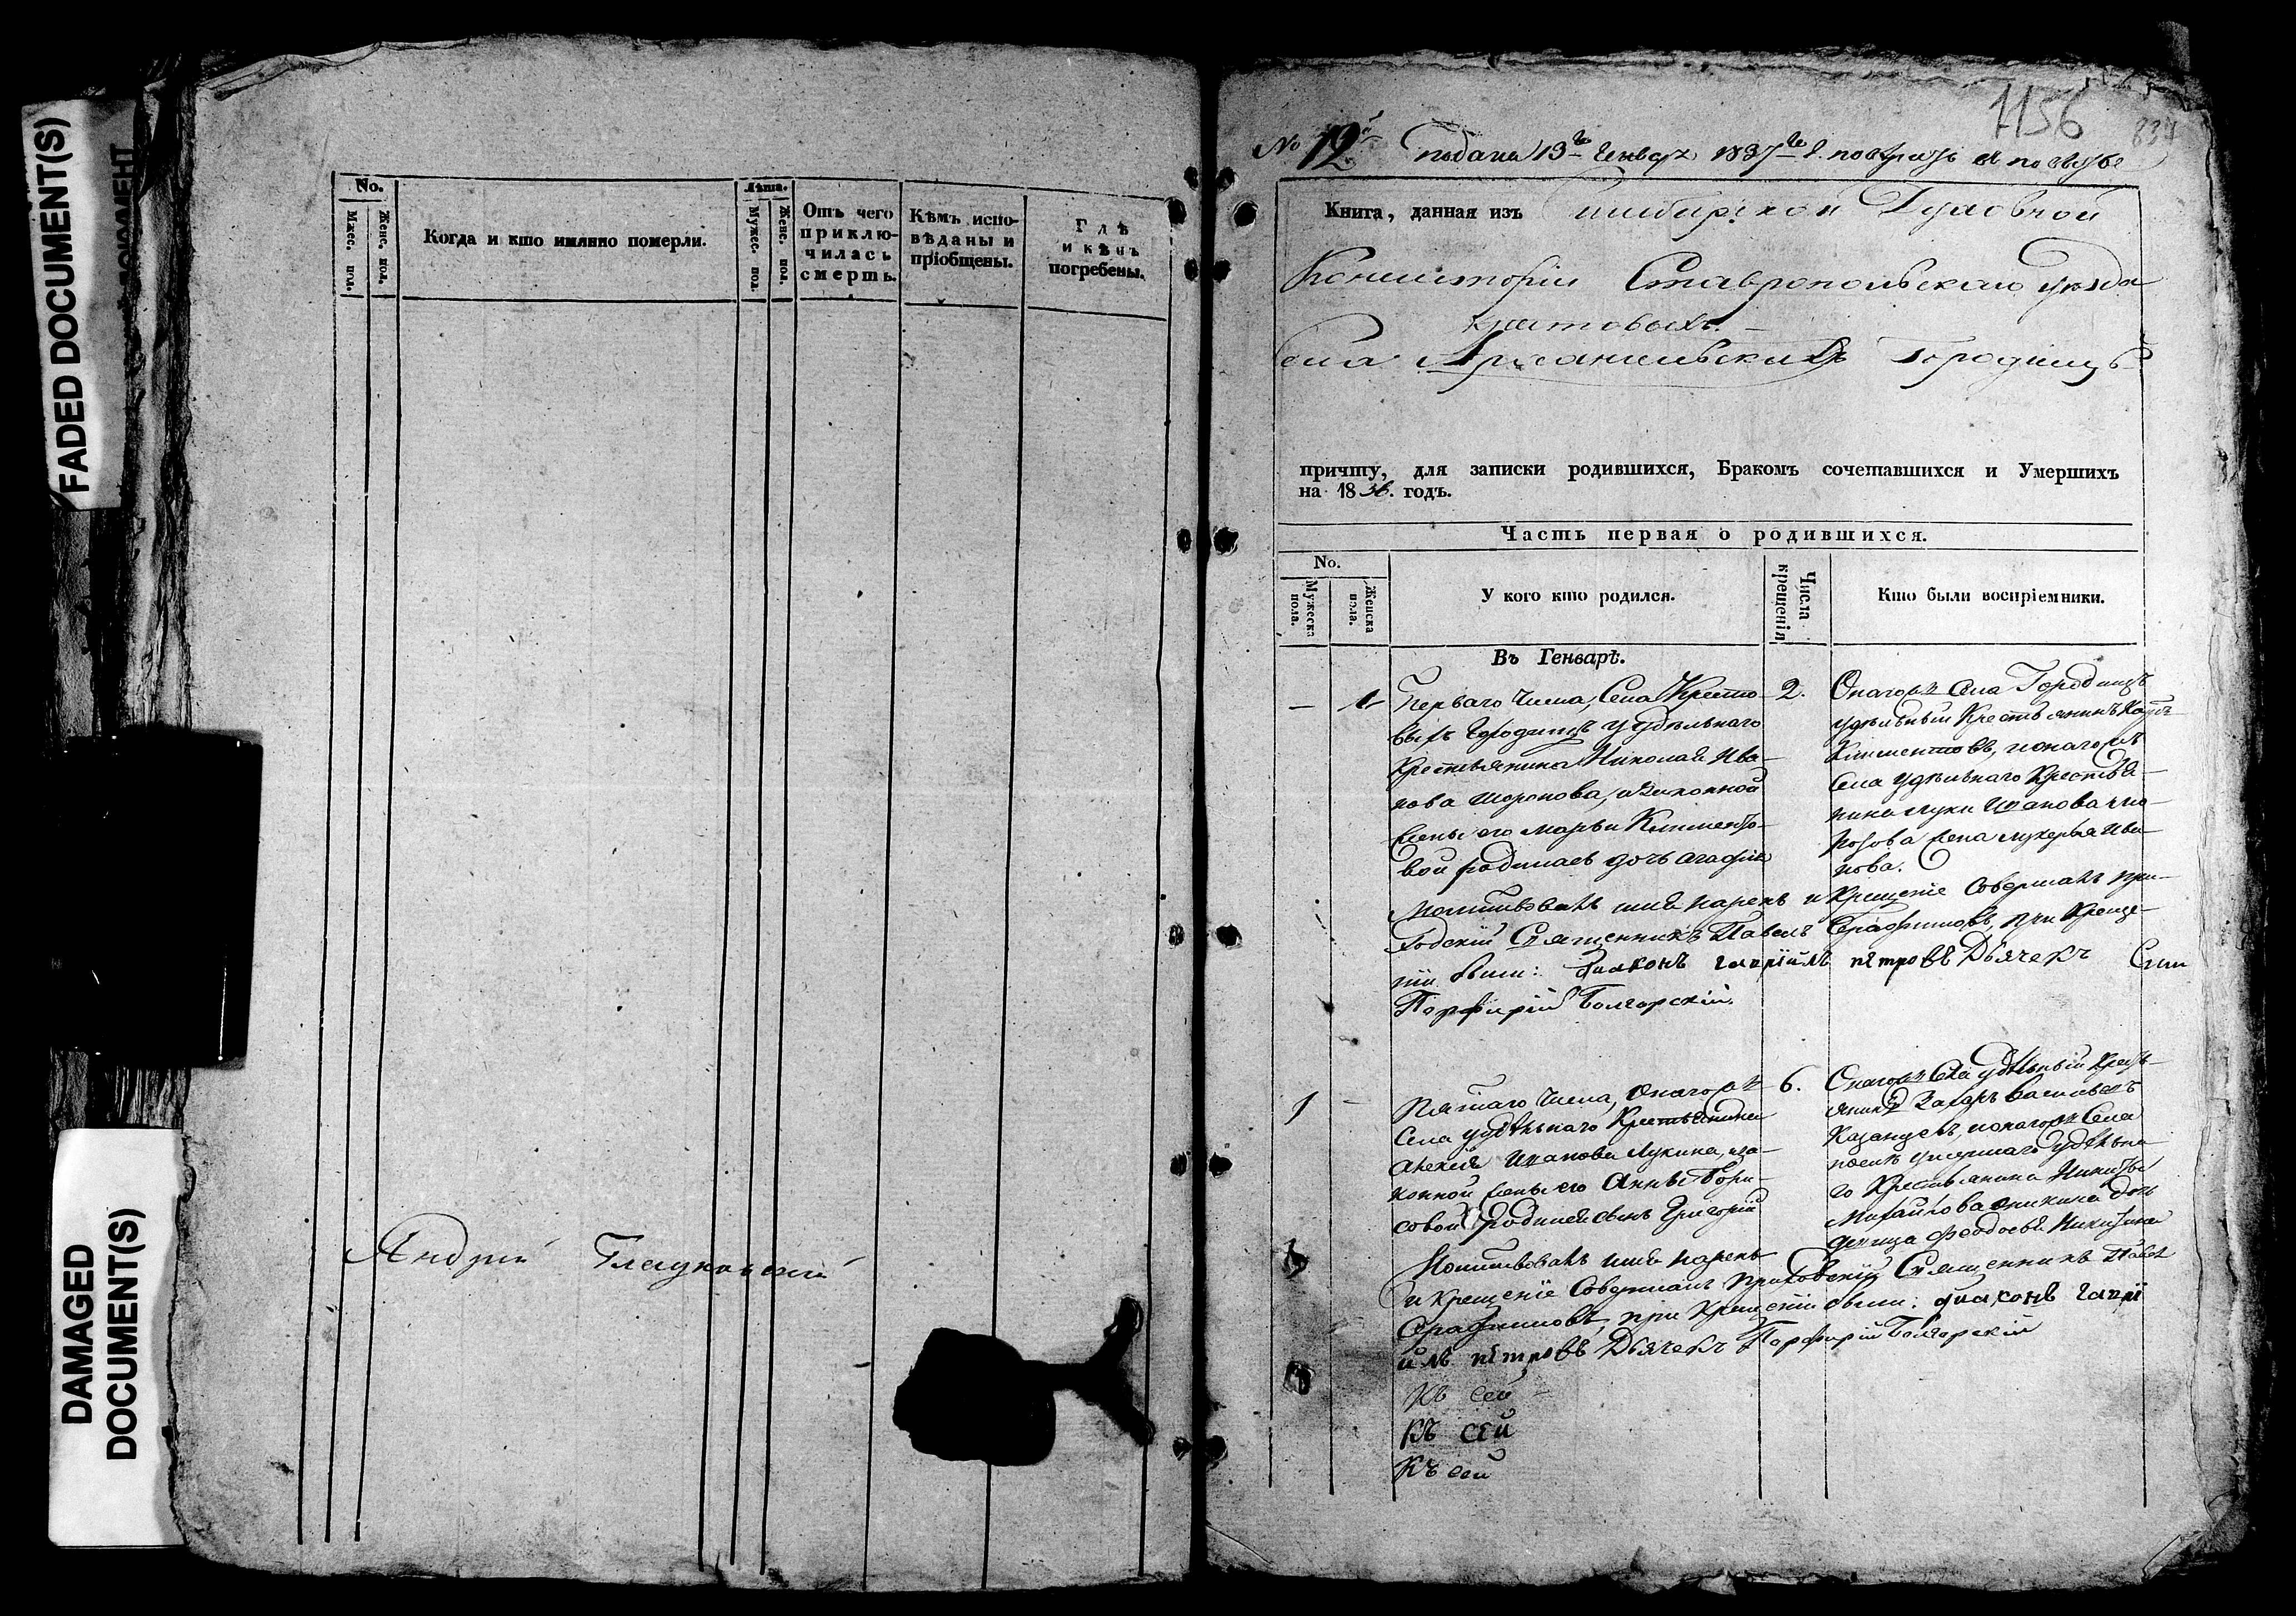 FADED DOCUMENT(S)
DAMAGED
DOCUMENT(S)
No.
Мужес. пол.
Женс. пол.
Когда и кто имянно померли.
Лѣта.
Мужес. пол.
Женс. пол.
Отъ чего
приклю-
чилась
смерть.
Кѣмъ испо-
вѣданы и
пріобщены.
Гдѣ
и кѣмъ
погребены.
Андрей
1156
834
No 12й подана 13го Генваря 1837го
Книга, данная изъ Симбирской Духовной
Консисторіи Ставропольскаго уѣзда
Крестовыхъ
села Архангельскихъ Городищъ
причту, для записки родившихся, Бракомъ сочетавшихся и Умершихъ
на 1836. годъ.
Часть первая о родившихся.
No.
Мужеска пола.
Женска пола.
У кого кто родился.
Числа крещенія
Кто были воспріемники.
Въ Генварѣ.
— 1
Перваго Числа, Села Кресто-
выхъ Городищъ удѣльнаго
Крестьянина Николая Ива-
нова и законной
жены его Марьи Клименто-
вой родилась дочь Агафія
2.
Онагожъ Села Городищъ
удѣльный Крестьянинъ
Климентовъ, и онагожъ
Села удѣльнаго Крестья-
нина Луки Иванова
жена Лукерья Ива-
нова.
Молитвовалъ имя нарекъ и Крещеніе Совершалъ при-
ходскій Священникъ Павелъ Серафимовъ, при Креще-
ніи были: діаконъ гавріилъ пѣтровъ Дьячекъ
Порфирій Болгарскій
1 —
Пятаго Числа, Онагожъ
Села удѣльнаго Крестьянина
Алексѣя Иванова Лукина, и за-
конной жены его Анны Бори-
совой родился сынъ Григорій
6.
Онагожъ Села удѣльный Кресть-
янинъ Захаръ Васильевъ
Казанцевъ, и онагожъ Села
умершаго удѣльна-
го Крестьянина Никиты
Михайлова Аникина дочь
девица Феодосья Никитина
Молитвовалъ имя нарекъ
и крещеніе Совершалъ приходскій Священникъ Павелъ
Серафимовъ, при Крещеніи были: діаконъ гаврі
илъ пѣтровъ Дьячекъ Порфирій Болгарскій
Къ сей
Къ сей
Къ сей